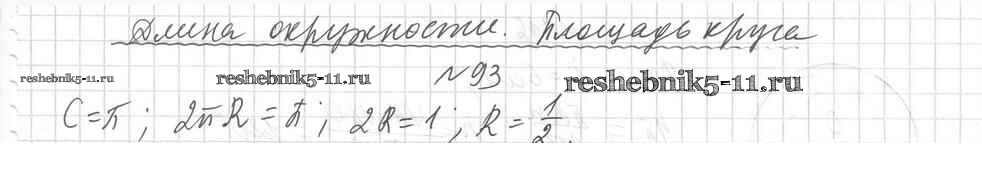 Длина окружности. Площадь круга
reshebnik5-11.ru reshebnik5-11.ru №93 reshebnik5-11.ru
C=π; 2πR=π; 2R=1; R=1/2.